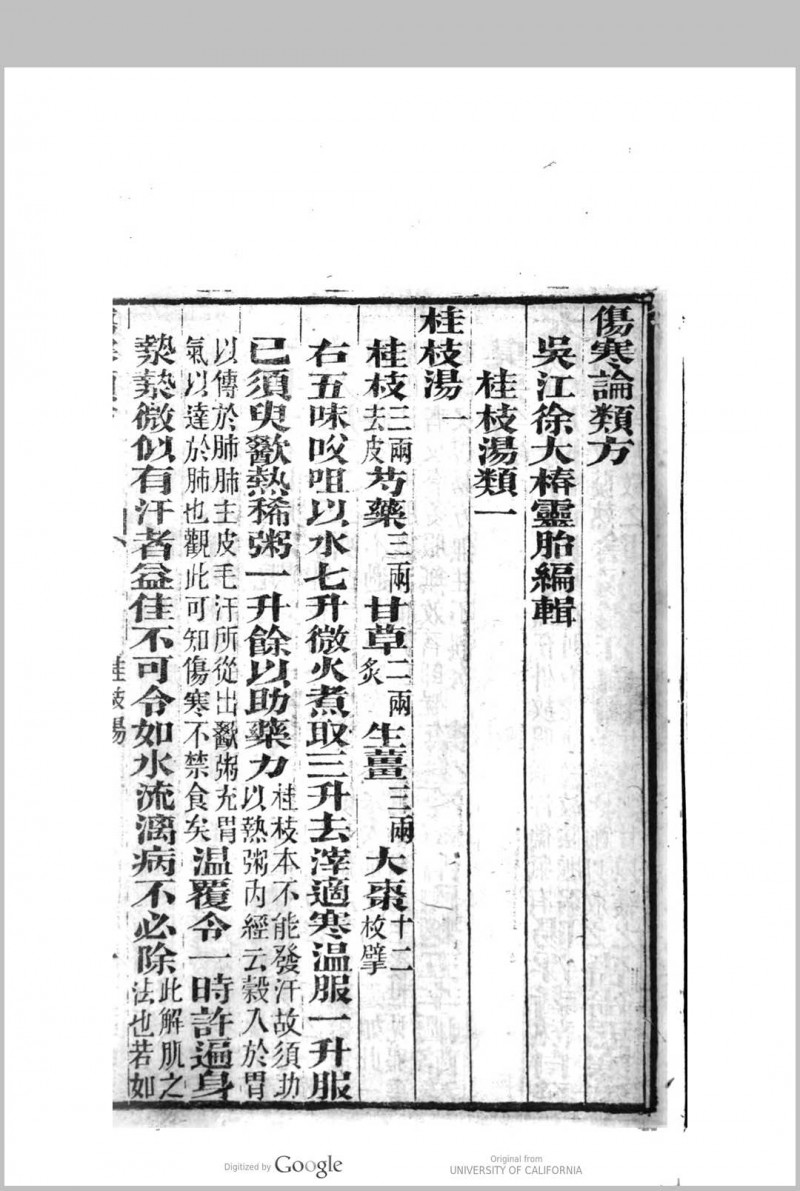 傷寒論類方
吳江徐大椿靈胎編輯
桂枝湯類一
桂枝湯一
桂枝三兩去皮芍藥三兩甘草二兩炙生薑三兩大棗十二枚擘
右五味㕮咀以水七升微火煮取三升去滓適寒温服一升服
已須臾歠熱稀粥一升餘以助藥力桂枝本不能發汗故須助以熱粥內經云穀入於胃
以傳於肺肺主皮毛汗所從出歠粥充胃氣以達於肺也觀此可知傷寒不禁食矣温覆令一時許遍身
漐漐微似有汗者益佳不可令如水流漓病不必除此解肌之法也若如
桂枝湯
Digitized by Google
Original from
UNIVERSITY OF CALIFORNIA